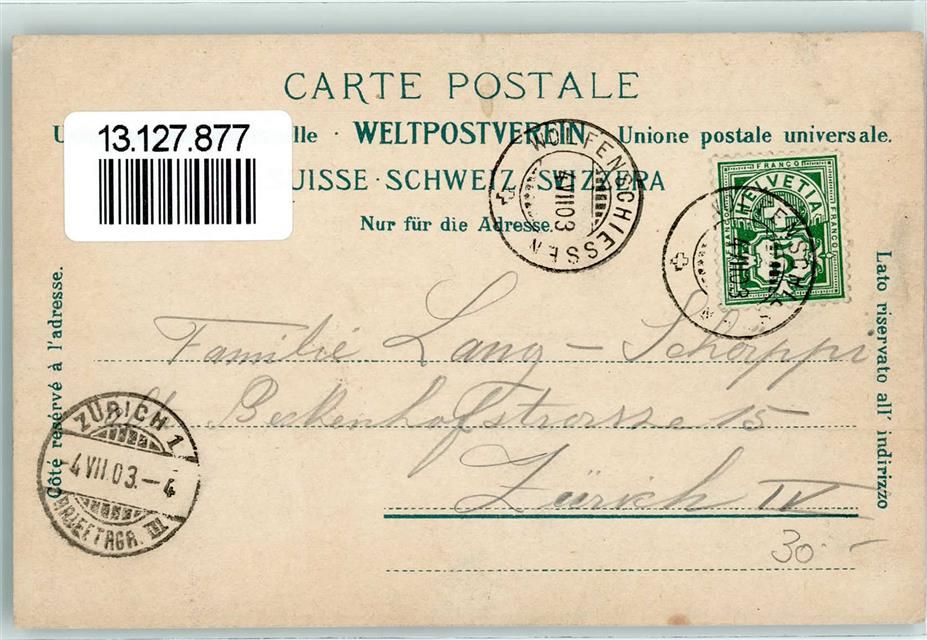 CARTE POSTALE
13.127.877
lle · WELTPOSTVEREIN · Unione postale universale.
UISSE · SCHWEIZ · SVIZZERA
Nur für die Adresse.
WOLFENSCHIESSEN
4 VII 03
FRANCO
HELVETIA
FRANCO
5
4 VII 03
Côté réservé à l'adresse.
Lato riservato all' indirizzo
Familie Lang - Schoppi
Beckenhofstrasse 15
Zürich IV
ZÜRICH 1
4 VII. 03. – 4
BRIEFTRGR. III.
30.-